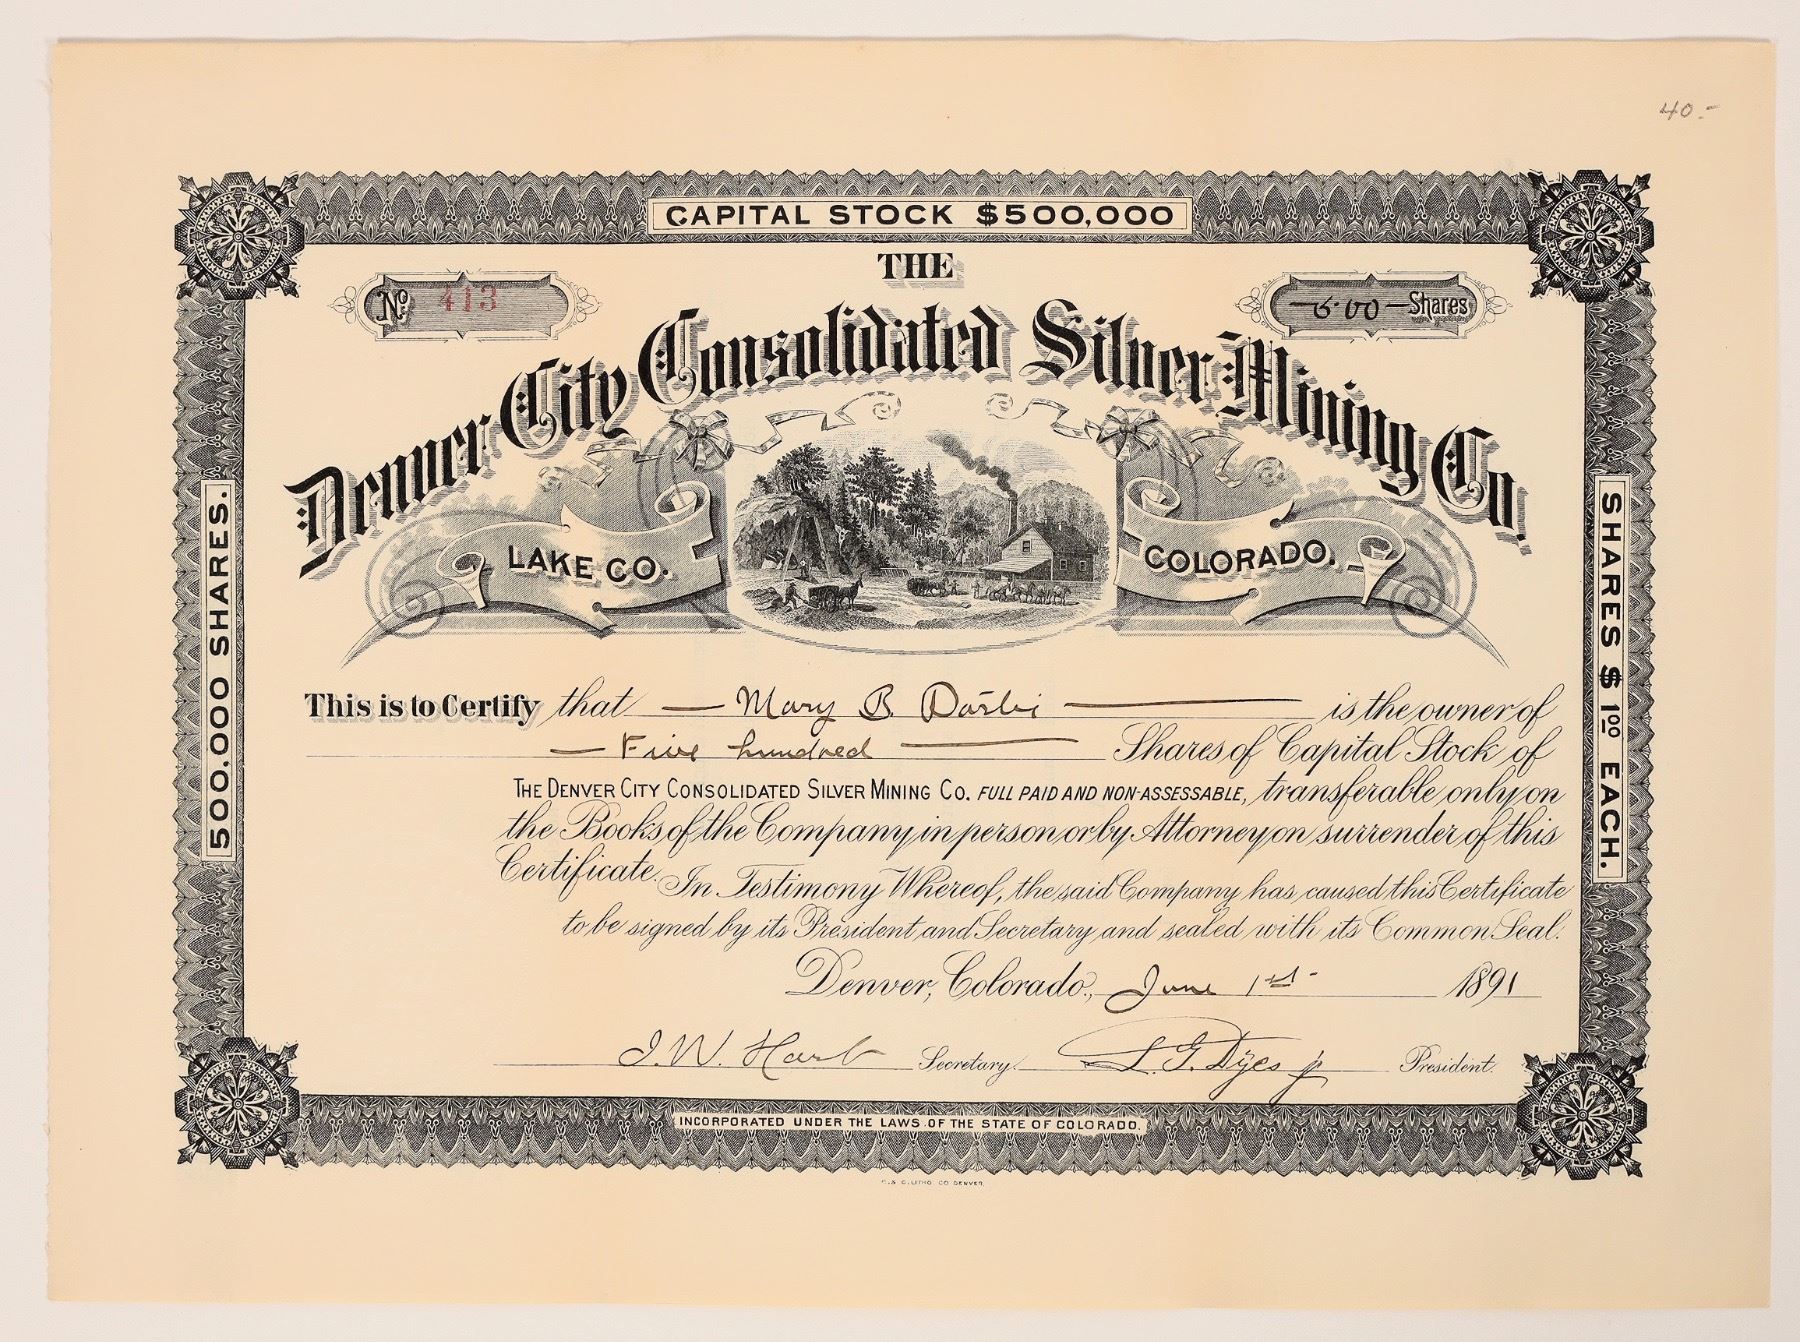 40.-
CAPITAL STOCK $500,000
THE
No 413
500 Shares
Denver City Consolidated Silver Mining Co.
LAKE CO.
COLORADO.
500.000 SHARES.
SHARES $1.00 EACH.
This is to Certify that Mary B. is the owner of
Five hundred Shares of Capital Stock of
THE DENVER CITY CONSOLIDATED SILVER MINING CO. FULL PAID AND NON-ASSESSABLE, transferable only on
the Books of the Company in person or by Attorney on surrender of this
Certificate. In Testimony Whereof, the said Company has caused this Certificate
to be signed by its President and Secretary and sealed with its Common Seal.
Denver, Colorado, June 1st 1891
J.W. Hart Secretary. L. G. Dyes Jr President.
INCORPORATED UNDER THE LAWS OF THE STATE OF COLORADO.
LITHO. CO DENVER.